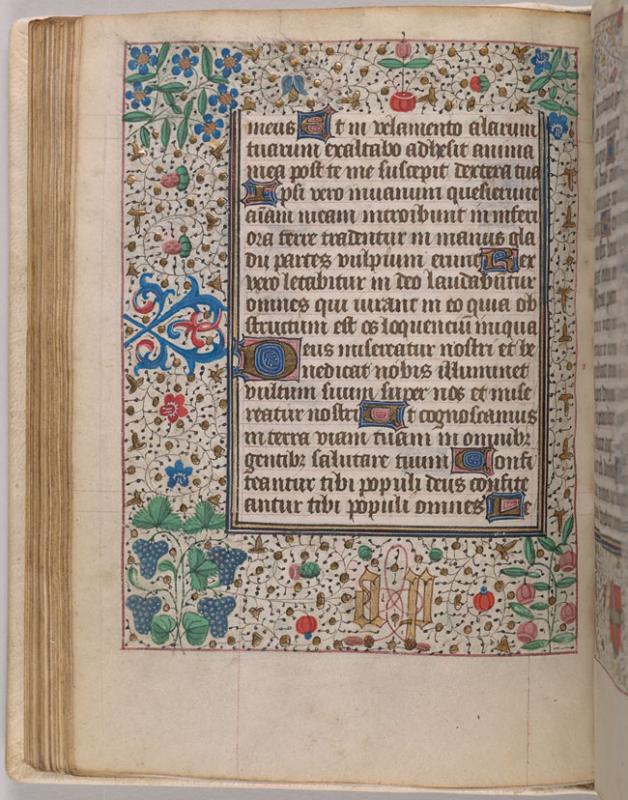 meus Et in velamento alarum
tuarum exaltabo adhesit anima
mea post te me suscepit dextera tua
Ipsi vero in uanum quesierunt
aīam meam introibunt in inferi
ora terre tradentur in manus gla
dii partes vulpium erunt Rex
vero letabitur in deo laudabūtur
omnes qui iurant in eo quia ob
structum est os loquenciū iniqua
Deus misereatur nostri et be
nedicat nobis illuminet
vultum suum super nos et mise
reatur nostri Et cognoscamus
in terra viam tuam in omnibꝫ
gentibꝫ salutare tuum Confi
teantur tibi populi deus confite
antur tibi populi omnes Le
a p